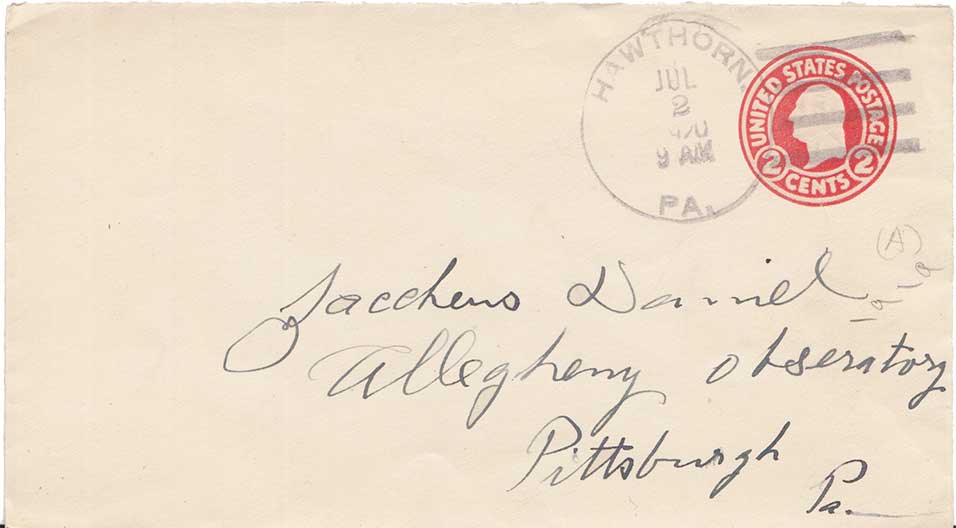 HAWTHORN.
JUL
2
9 AM
PA.
UNITED STATES POSTAGE
2 CENTS 2
(A)
Zaccheus Daniel
Allegheny Obseratory
Pittsburgh
Pa.